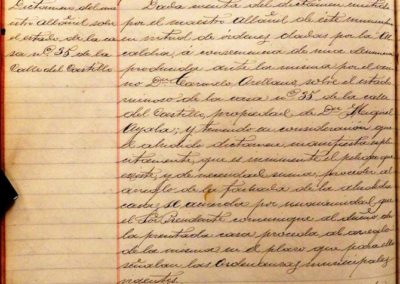 Dictamen del maes
tro albañil sobre
el estado de la ca
sa nº 35 de la
Calle del Castillo
Dada cuenta del dictamen emitido
por el maestro Albañil de este municipio
en virtud de órdenes dadas por la Al
caldía á consecuencia de una denuncia
producida ante la misma por el veci
no Dn Carmelo Arellano, sobre el estado
ruinoso de la casa nº 35 de la calle
del Castillo, propiedad de Dn Miguel
Ayala; y teniendo en consideración que
el aludido dictamen manifiesta expli
citamente, que es inminente el peligro que
existe, y de necesidad suma, proceder al
arreglo de la fachada de la aludida
casa; se acuerda por unanimidad, que
el Sor Presidente comunique al dueño de
la precitada casa proceda al arreglo
de la misma en el plazo que para ello
señalan las Ordenanzas municipales
vigentes.